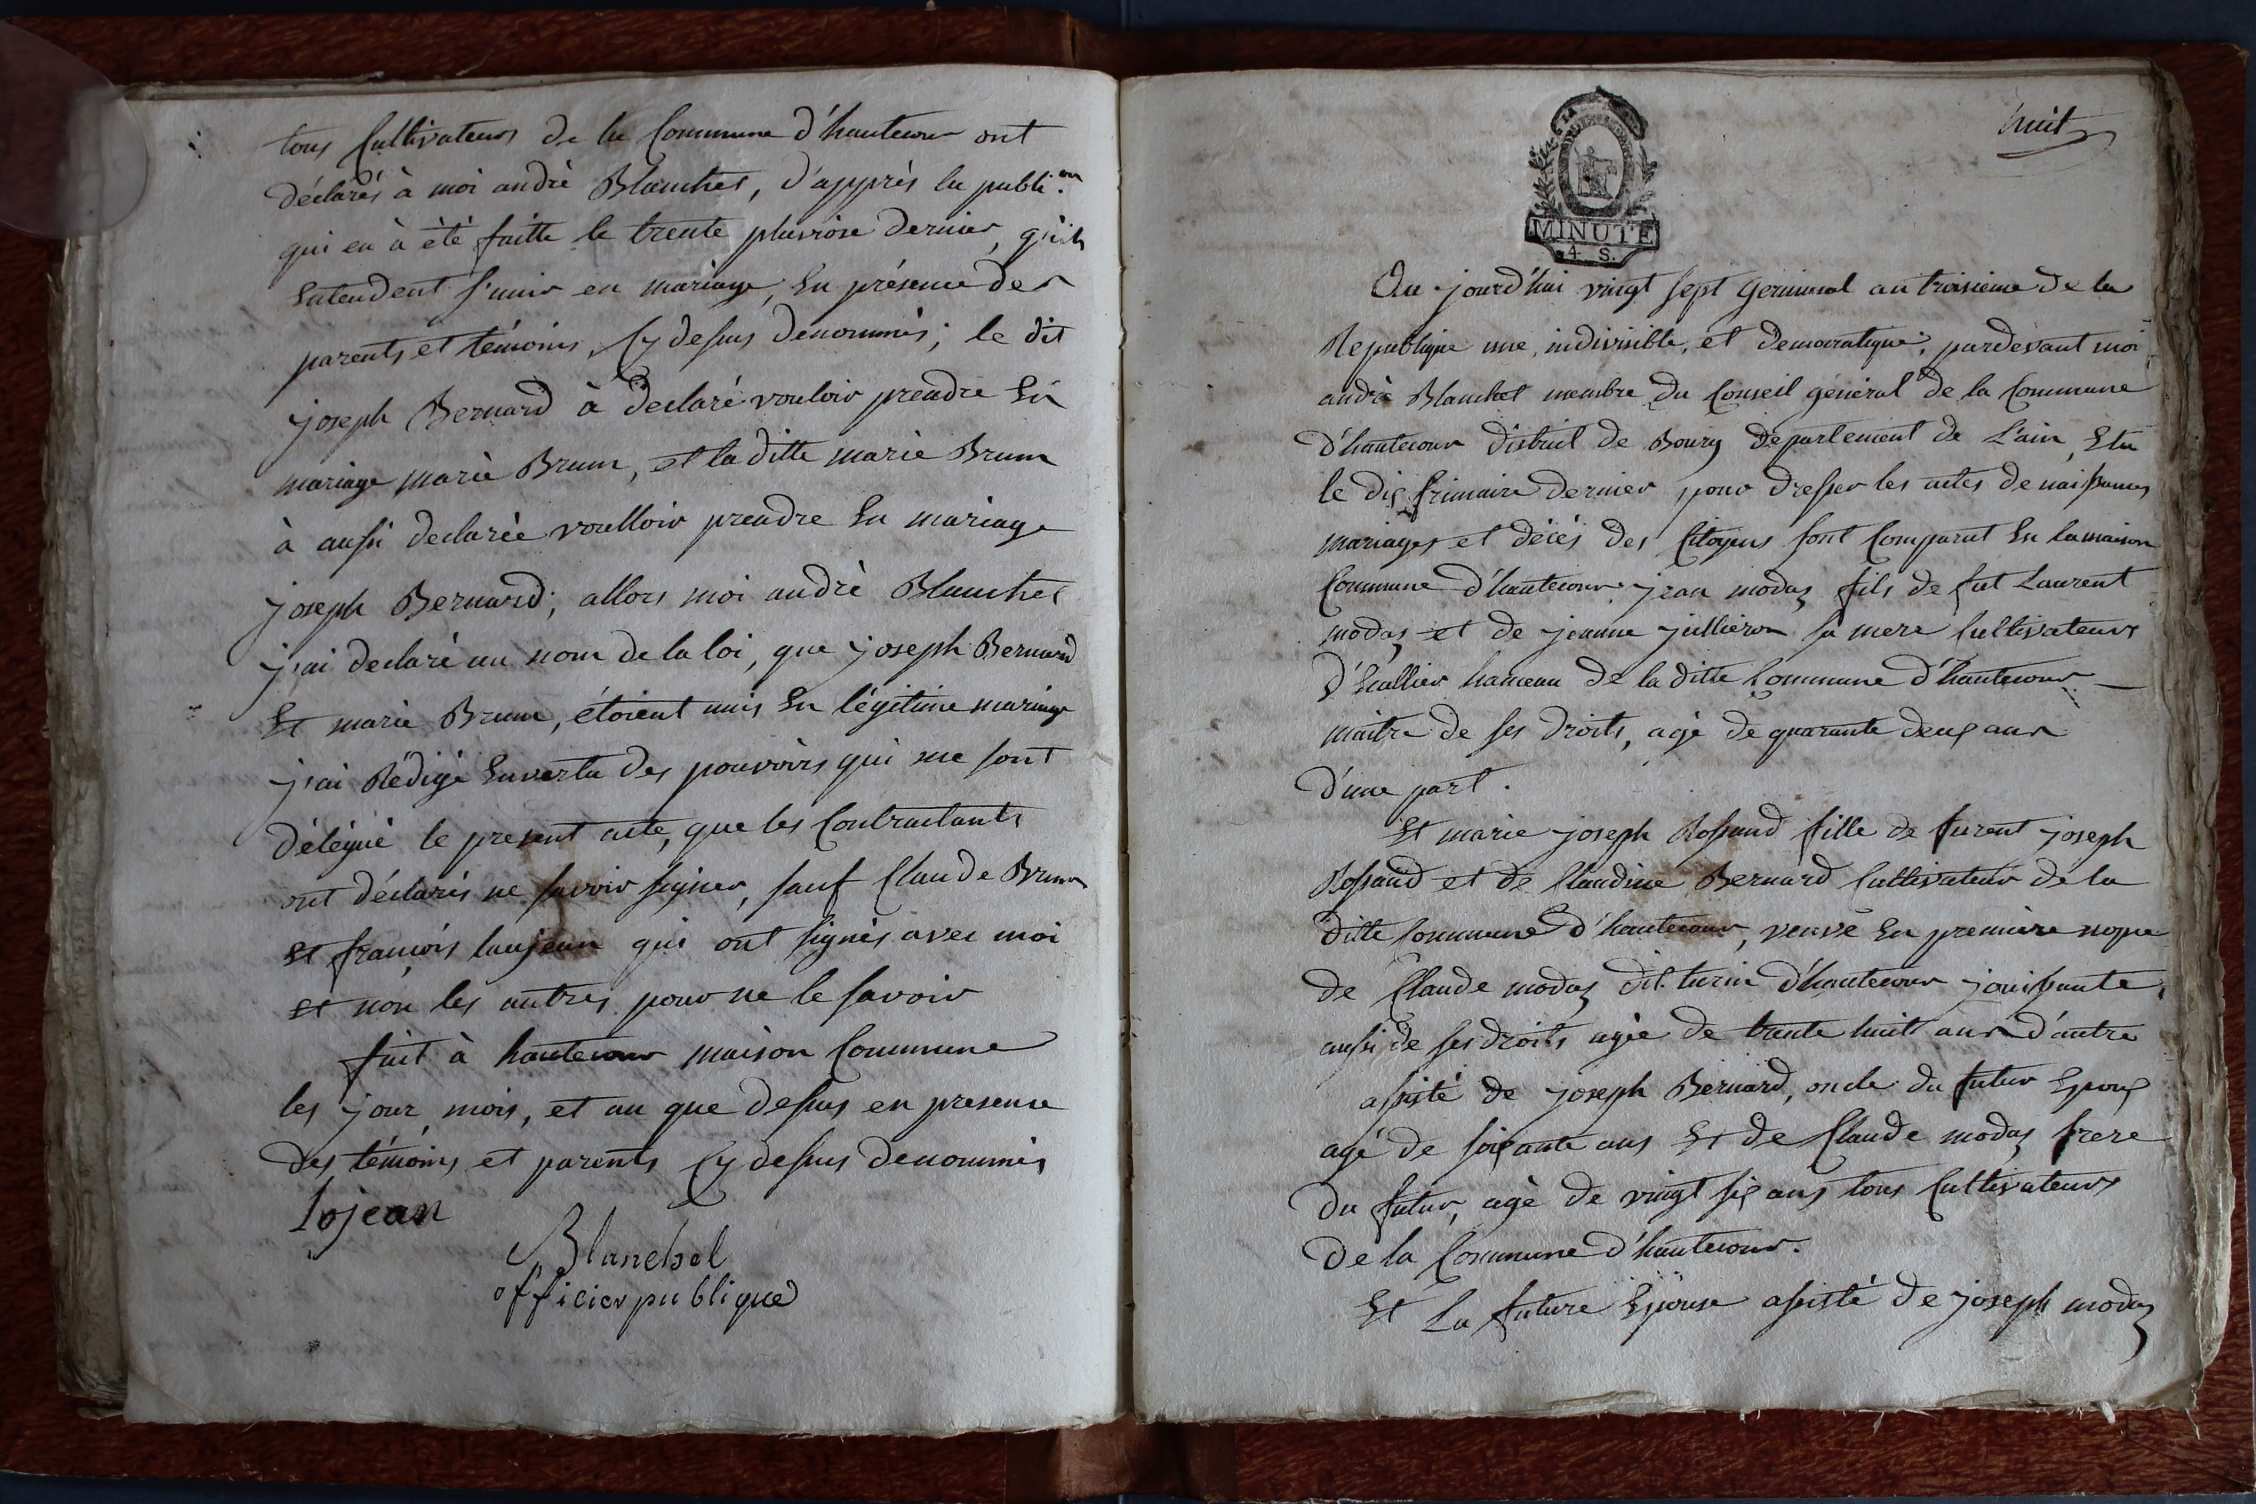 tous Cultivateurs de la Commune d'hautecour ont
déclarés à moi andrè Blanchet, d'apprès la publi.on
qui en à été faitte le trente pluviose dernier, qu'ils
Entendent s'unir en mariage, En présence des
parents et témoins, Cy dessus dénommés; le dit
joseph Bernard à déclaré vouloir prendre En
mariage marie Brum, et la ditte marie Brum
à aussi declarée voulloir prendre En mariage
joseph Bernard; allors moi andrè Blanchet
j'ai declaré au nom de la loi, que joseph Bernard
Et marie Brum, étoient unis En légitime mariage
j'ai Rédigé Envertu des pouvoirs qui me sont
délégué le present acte, que les Contractants
ont déclarés ne savoir signer, sauf Claude Brum
Et françois laujean qui ont signés avec moi
Et non les autres pour ne le savoir
fait à hautecour maison Commune
les jour, mois, et an que dessus en presence
des témoins et parents Cy dessus denommés
Lojean
Blanchet
officier publique
huit
LA
MINUTE
4. S.
Au jourd'hui vingt sept Germinal an troisieme de la
Republique une, indivisible, et democratique, pardevant moi
andrè Blanchet membre du Conseil général de la Commune
d'hautecour district de Bourg département de L'ain, Elu
le dix frimaire dernier, pour dresser les actes de naissances
mariages et décés des Citoyens sont Comparut En la maison
Commune d'hautecour jean modas fils de fut Laurent
modas et de jeanne jullieron sa mere Cultivateurs
d' hameau de la ditte Commune d'hautecour
maitre de ses droits, agé de quarante deux ans
d'une part.
Et marie joseph Rossand fille de furent joseph
Rossand et de Claudine Bernard Cultivateur de la
ditte Commune d'hautecour, veuve En premiere nopce
de Claude modas dit turin d'hautecour jouissante,
aussi de ses droits agée de trente huit ans d'autre
assisté de joseph Bernard, oncle du futur Epoux
agé de soixante ans Et de Claude modas frere
du futur, agé de vingt six ans tous Cultivateurs
de la Commune d'hautecour.
Et La future Epouse assisté de joseph modas